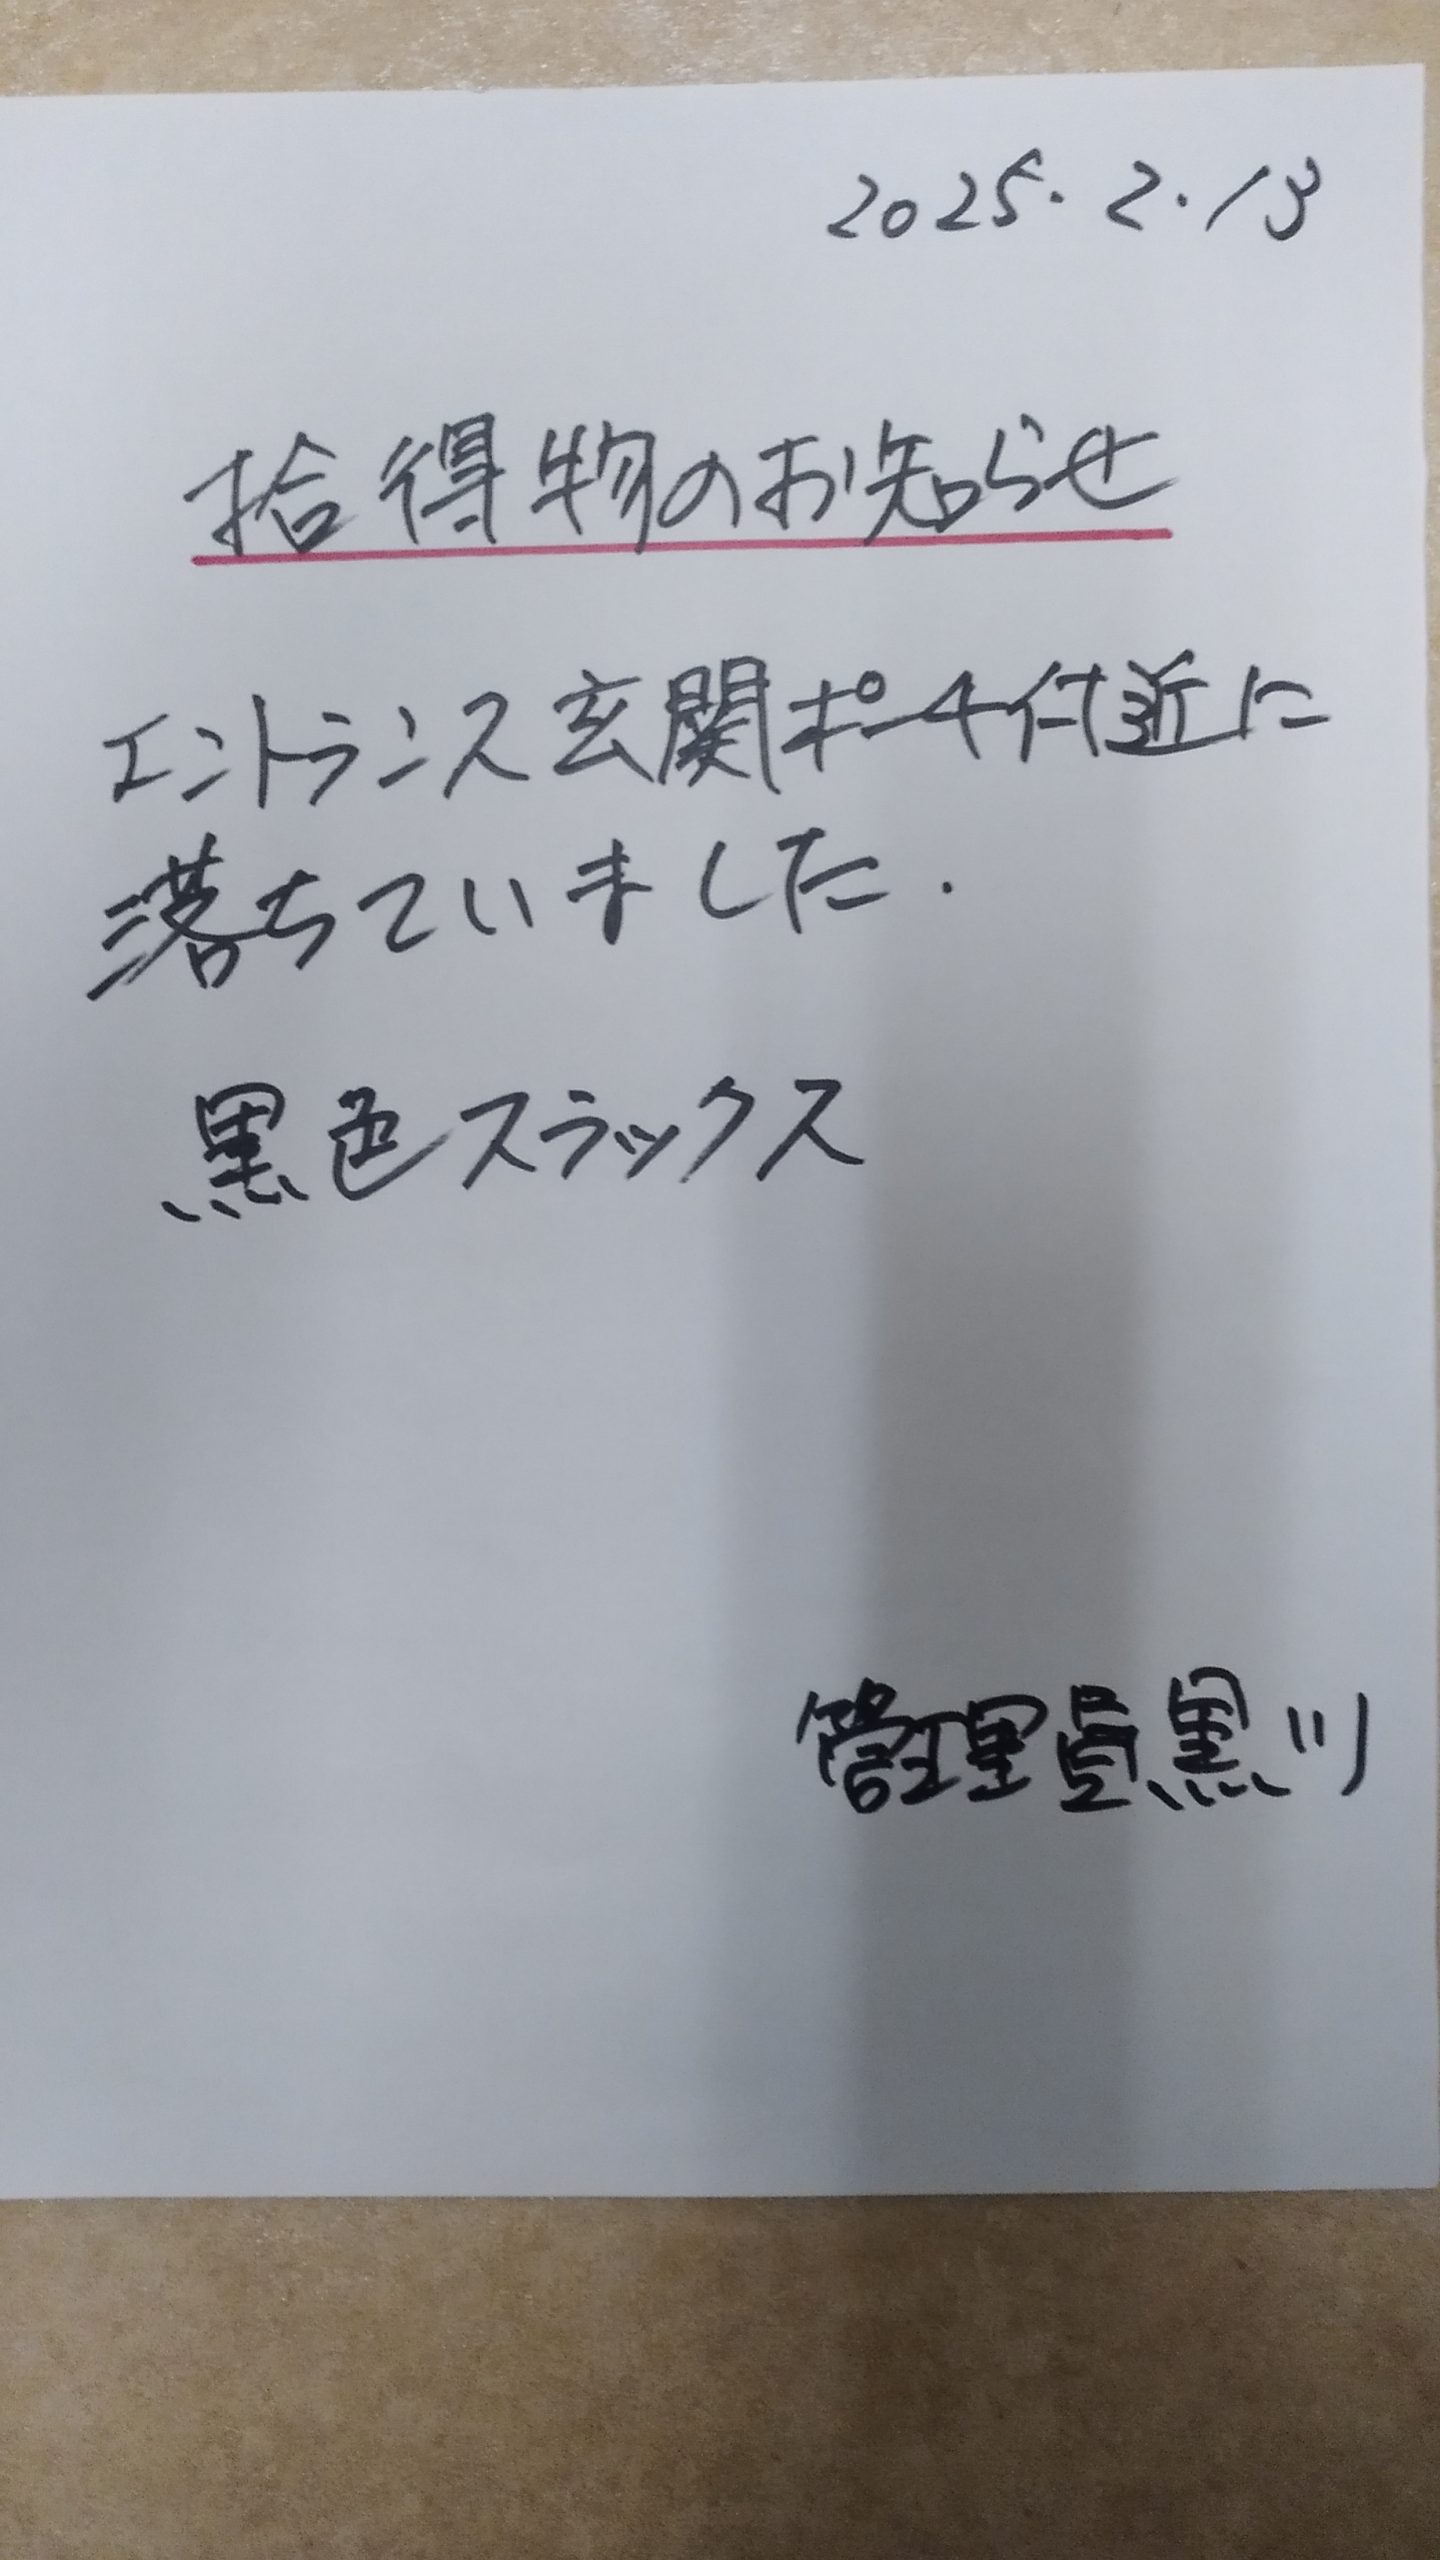 2025.2.13
拾得物のお知らせ
エントランス玄関ポーチ付近に
落ちていました.
黒色スラックス
管理員黒川